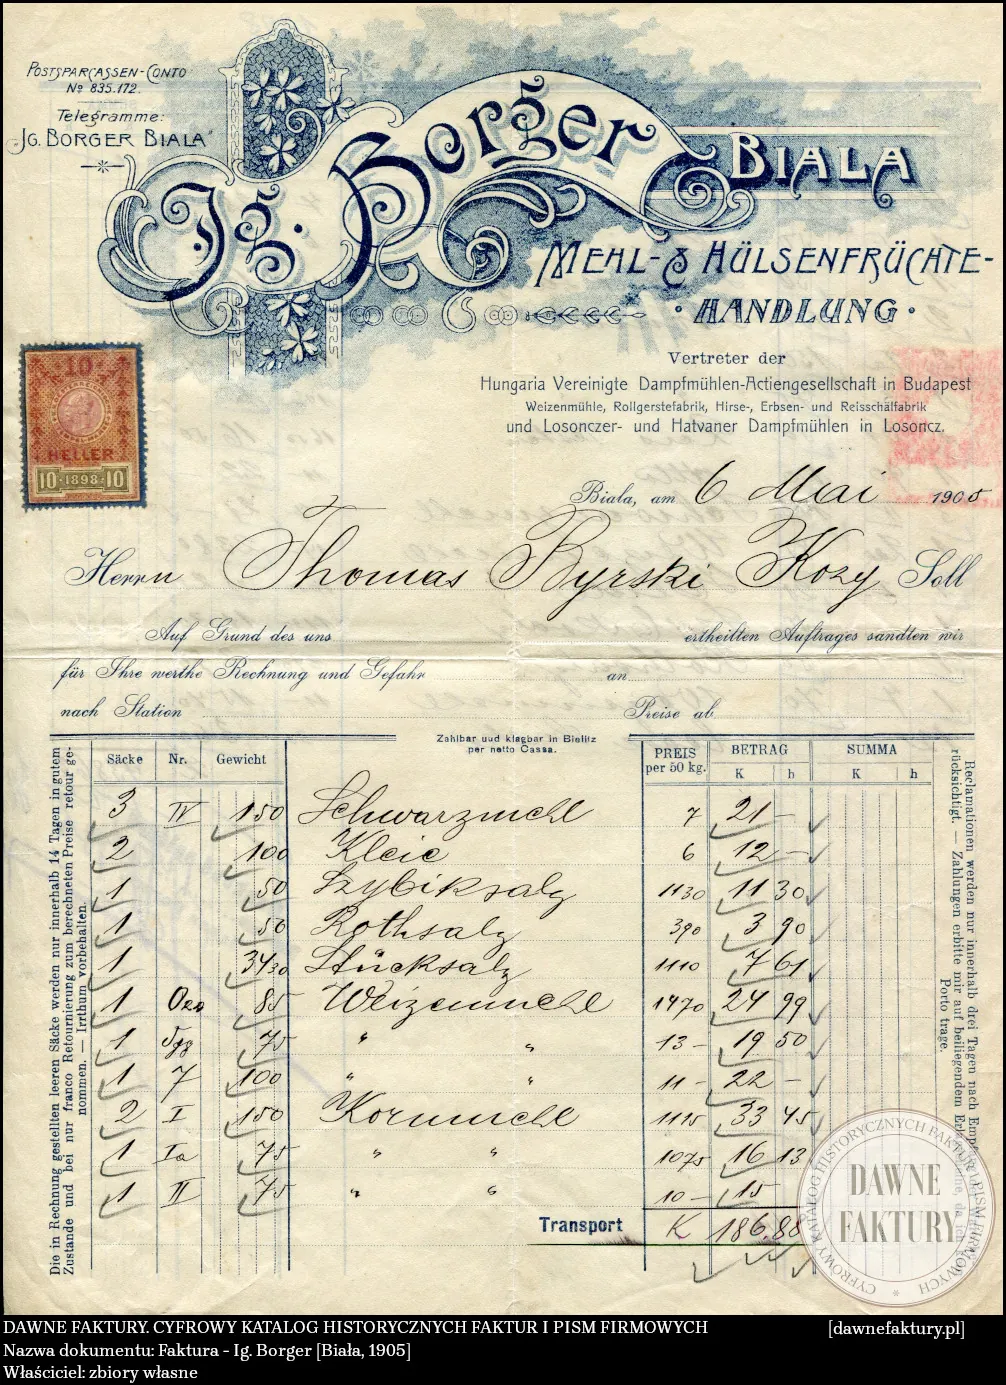 POSTSPARCASSEN-CONTO
No 835.172.
Telegramme:
"IG. BORGER BIALA"
Ig. Borger
BIALA
MEHL- & HÜLSENFRÜCHTE-
HANDLUNG
Vertreter der
Hungaria Vereinigte Dampfmühlen-Actiengesellschaft in Budapest
Weizenmühle, Rollgerstefabrik, Hirse-, Erbsen- und Reisschälfabrik
und Losonczer- und Hatvaner Dampfmühlen in Losoncz.
10
HELLER
10 1898 10
Biala, am 6 Mai 1905
Herrn Thomas Byrski Kozy Soll
Auf Grund des uns ertheilten Auftrages sandten wir
für Ihre werthe Rechnung und Gefahr an
nach Station Preise ab
Zahlbar und klagbar in Bielitz
per netto Cassa.
Säcke Nr. Gewicht PREIS per 50 kg. BETRAG K h SUMMA K h
3 IV 150 Schwarzmehl 7 21 -
2 100 Kleie 6 12 -
1 50 Szybiksalz 1130 11 30
1 50 Rothsalz 390 3 90
1 3430 Stücksalz 1110 7 61
1 85 Weizenmehl 1470 24 99
1 75 " " 13 - 19 50
1 7 100 " " 11 - 22 -
2 I 150 Kornmehl 1115 33 45
1 Ia 75 " " 1075 16 13
1 II 75 " " 10 - 15
Transport K 186.88
Die in Rechnung gestellten leeren Säcke werden nur innerhalb 14 Tagen in gutem
Zustande und bei nur franco Retournierung zum berechneten Preise retour ge-
nommen. — Irrthum vorbehalten.
Reclamationen werden nur innerhalb drei Tagen nach
rücksichtigt. — Zahlungen erbitte mir auf beiliegendem
Porto trage.
DAWNE
FAKTURY
CYFROWY KATALOG HISTORYCZNYCH FAKTUR I PISM FIRMOWYCH
DAWNE FAKTURY. CYFROWY KATALOG HISTORYCZNYCH FAKTUR I PISM FIRMOWYCH [dawnefaktury.pl]
Nazwa dokumentu: Faktura - Ig. Borger [Biała, 1905]
Właściciel: zbiory własne